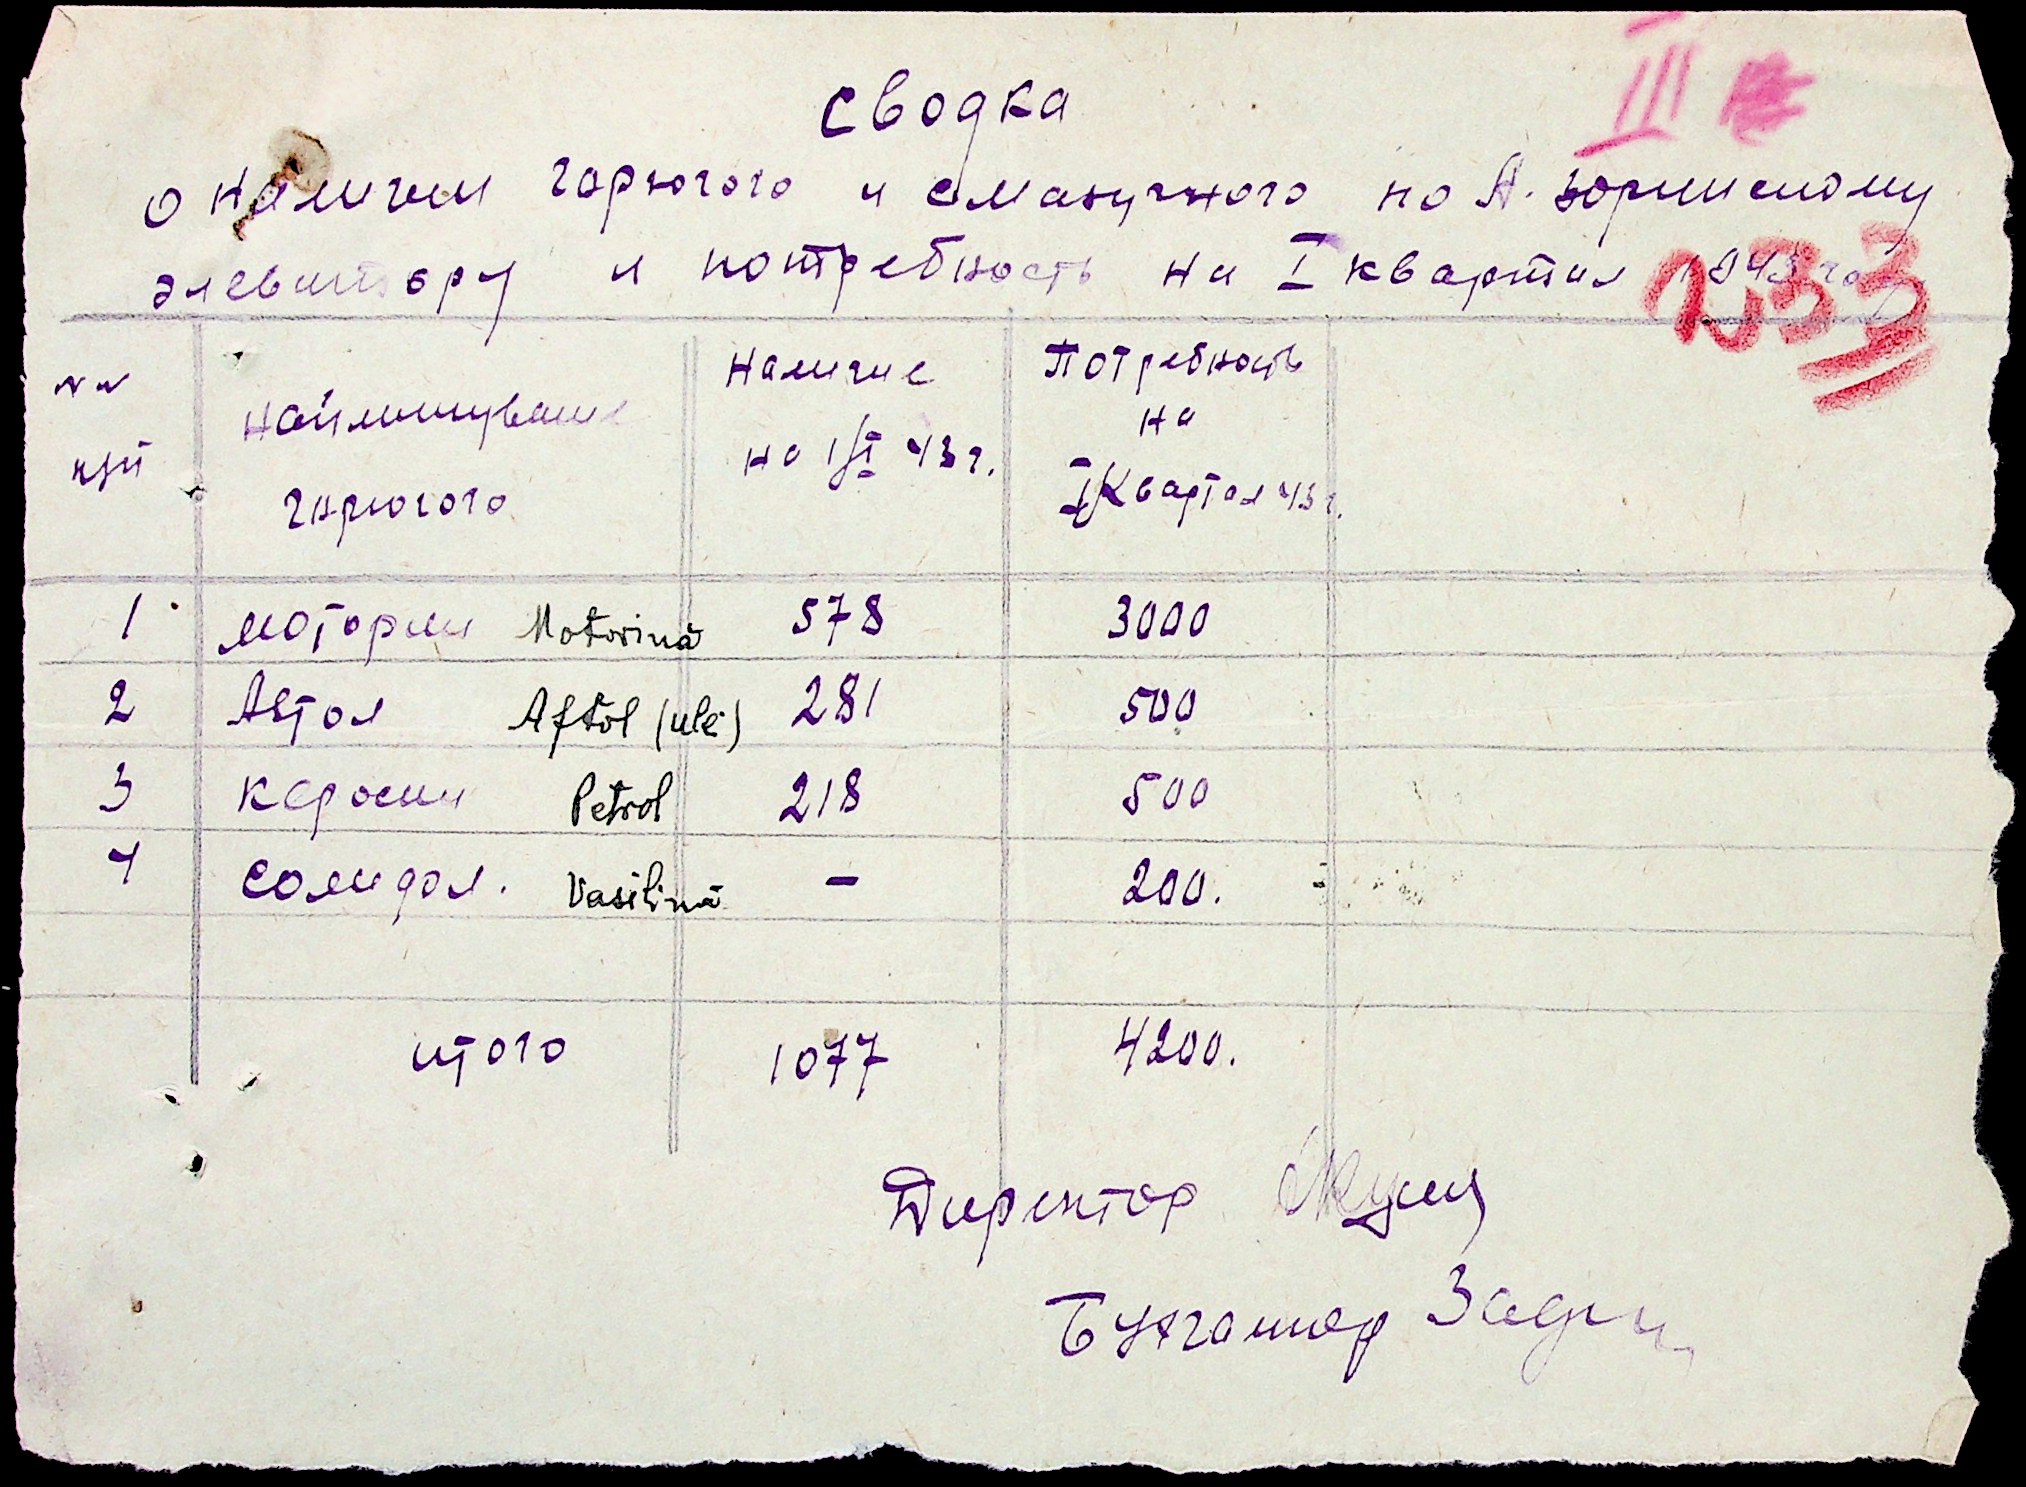 Сводка
о наличии горючого и смазучного по А. Зоринскому
элеватору и потребность на I квартал 1943 го
III
233
NN
п/п
Найминувание
горючого
Наличие
на 1/I 43 г.
Потребность
на
I Квартал 43 г.
1 моторин Motorină 578 3000
2 Автол Aftol (ulei) 281 500
3 Керосин Petrol 218 500
4 Солидол. Vasilină – 200.
итого 1077 4200.
Директор
Бухгалтер